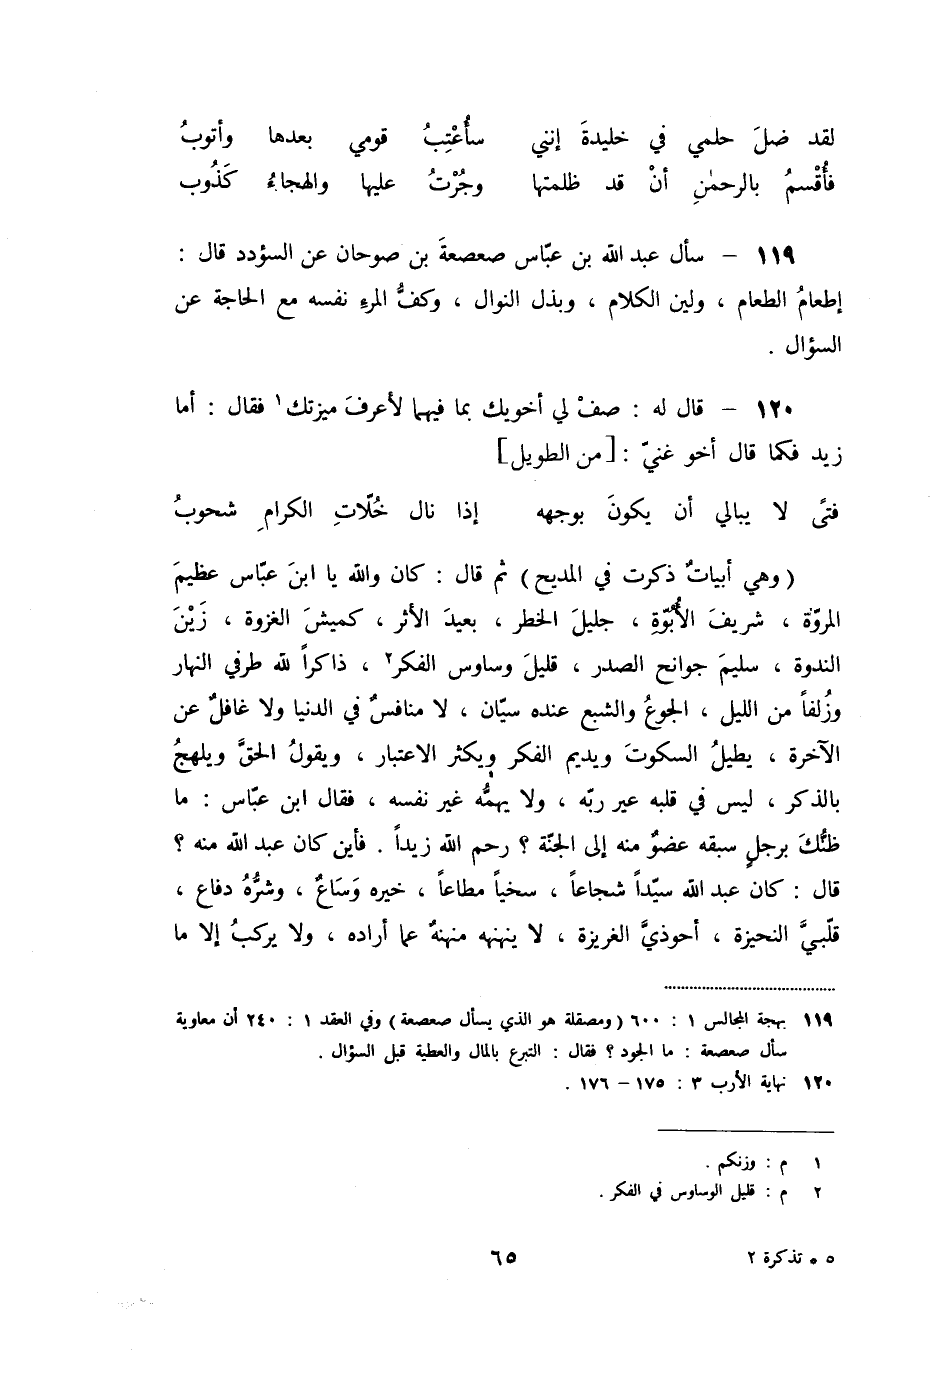 لقد ضلَ حلمي في خليدةَ إنني سأُعْتِبُ قومي بعدها وأتوبُ
فأُقْسمُ بالرحمٰنِ أنْ قد ظلمتها وجُرْتُ عليها والهجاءُ كَذُوب
١١٩ – سأل عبد الله بن عبّاس صعصعةَ بن صوحان عن السؤدد قال :
إطعامُ الطعام ، ولين الكلام ، وبذل النوال ، وكفُّ المرءِ نفسه مع الحاجة عن
السؤال .
١٢٠ – قال له : صفْ لي أخويك بما فيهما لأعرفَ ميزتك١ فقال : أما
زيد فكما قال أخو غنيّ : [من الطويل]
فتىً لا يبالي أن يكونَ بوجهه إذا نال خُلّاتِ الكرامِ شحوبُ
(وهي أبياتٌ ذكرت في المديح) ثم قال : كان والله يا ابنَ عبّاس عظيمَ
المروّة ، شريفَ الأُبُوّةِ ، جليلَ الخطر ، بعيدَ الأثر ، كميشَ الغزوة ، زَيْنَ
الندوة ، سليمَ جوانح الصدر ، قليلَ وساوس الفكر٢ ، ذاكراً لله طرفي النهار
وزُلفاً من الليل ، الجوعُ والشبع عنده سيّان ، لا منافسٌ في الدنيا ولا غافلٌ عن
الآخرة ، يطيلُ السكوتَ ويديم الفكر ويكثر الاعتبار ، ويقولُ الحقَّ ويلهجُ
بالذكر ، ليس في قلبه عير ربّه ، ولا يهمُّه غير نفسه ، فقال ابن عبّاس : ما
ظنُّكَ برجلٍ سبقه عضوٌ منه إلى الجنّة ؟ رحم الله زيداً . فأين كان عبد الله منه ؟
قال : كان عبد الله سيّداً شجاعاً ، سخياً مطاعاً ، خيره وَسَاعٌ ، وشرُّهُ دفاع ،
قلّبيَّ النحيزة ، أحوذيَّ الغريزة ، لا ينهنه منهنهٌ عما أراده ، ولا يركبُ إلا ما
١١٩ بهجة المجالس ١ : ٦٠٠ (ومصقلة هو الذي يسأل صعصعة) وفي العقد ١ : ٢٤٠ أن معاوية
سأل صعصعة : ما الجود ؟ فقال : التبرع بالمال والعطية قبل السؤال .
١٢٠ نهاية الأرب ٣ : ١٧٥ – ١٧٦ .
١ م : وزنكم .
٢ م : قليل الوساوس في الفكر .
٥ • تذكرة ٢ ٦٥